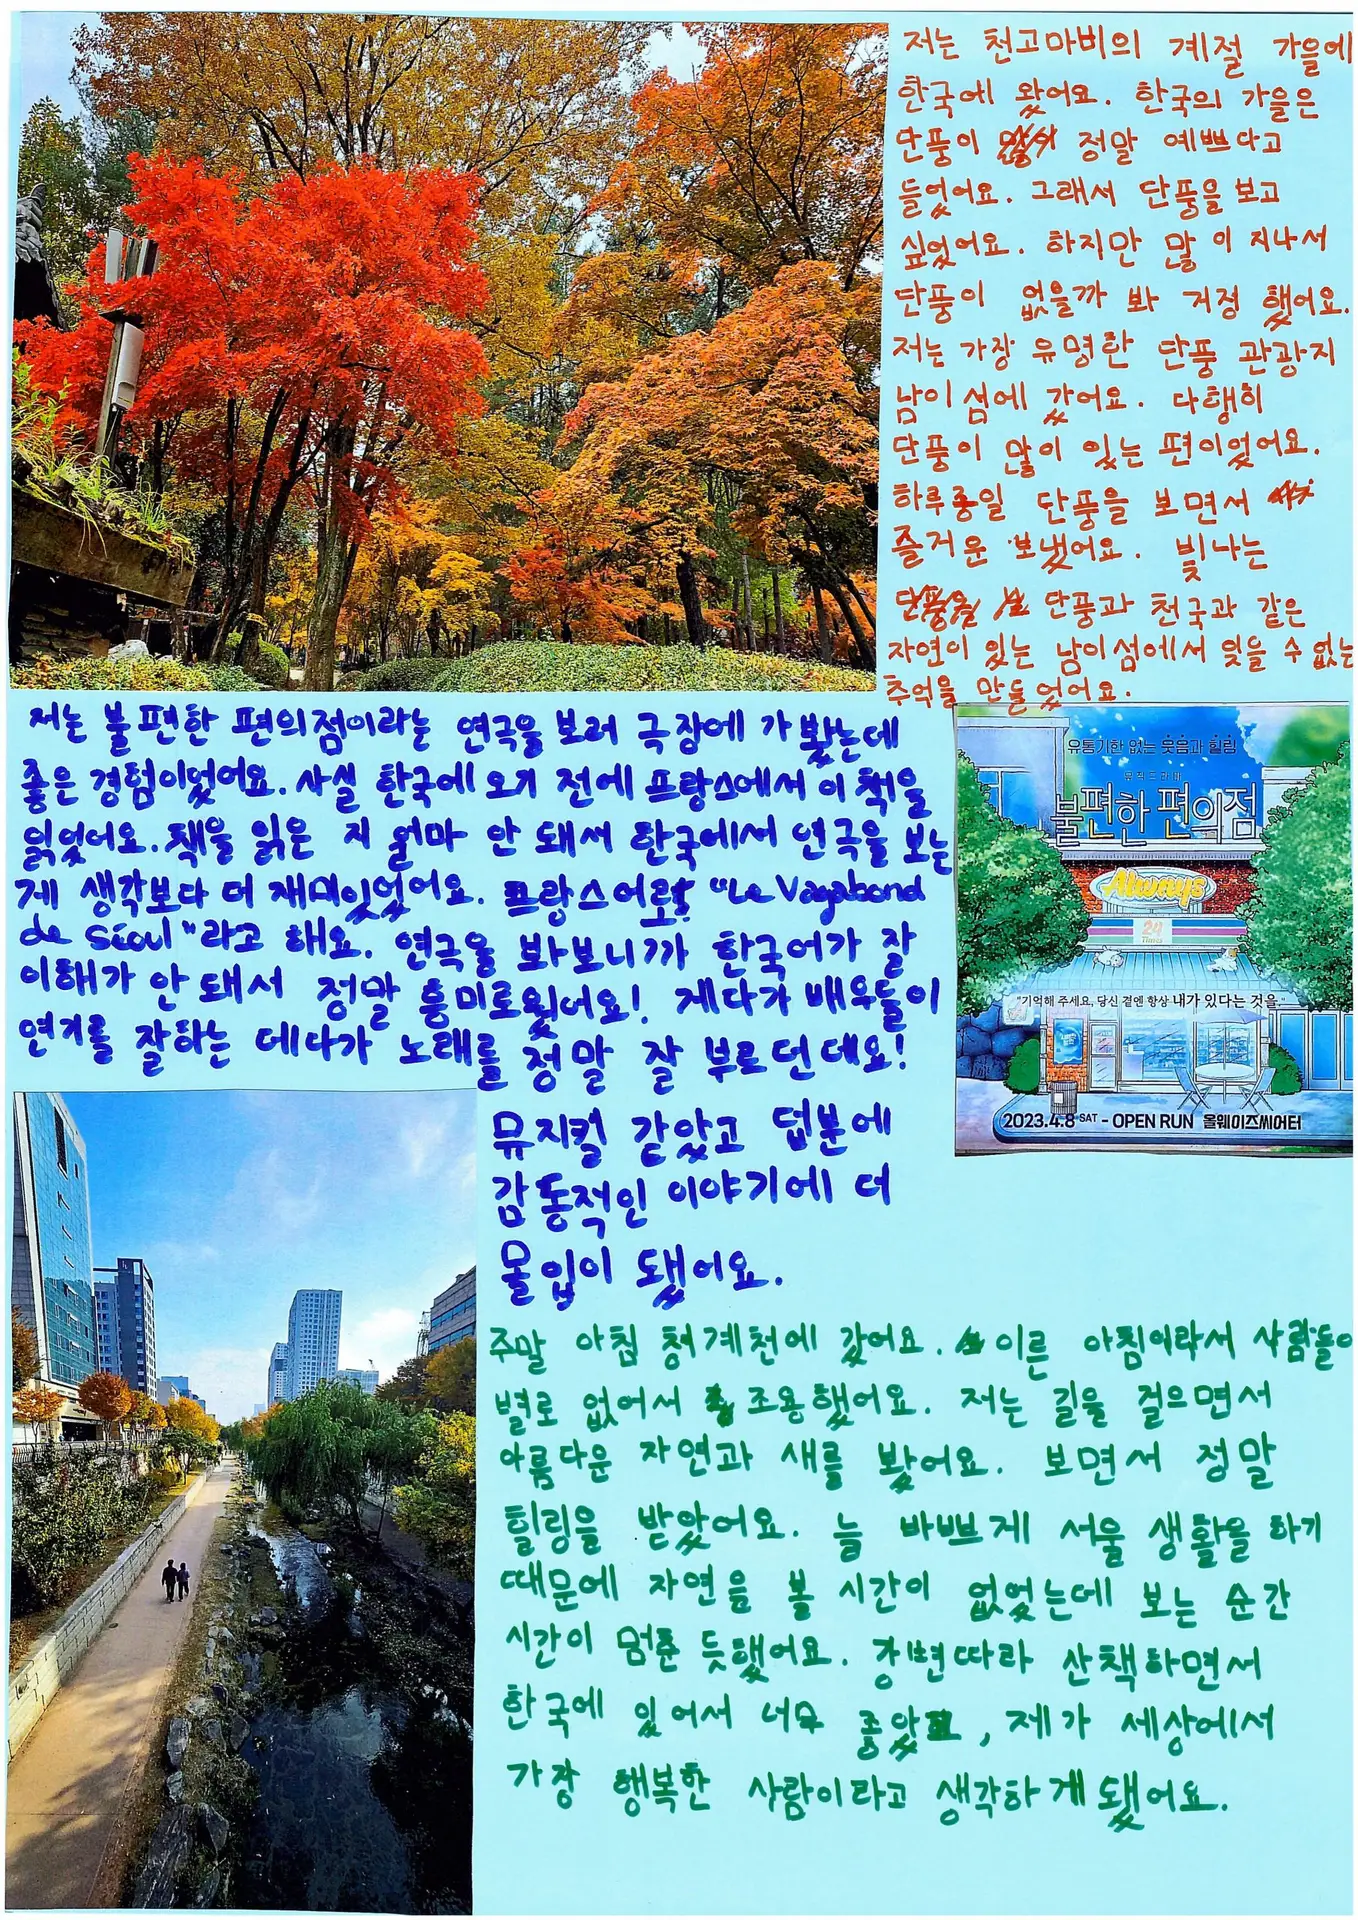 저는 천고마비의 계절 가을에
한국에 왔어요. 한국의 가을은
단풍이 정말 예쁘다고
들었어요. 그래서 단풍을 보고
싶었어요. 하지만 많이 지나서
단풍이 없을까 봐 거정 했어요.
저는 가장 유명한 단풍 관광지
남이섬에 갔어요. 다행히
단풍이 많이 있는 편이었어요.
하루종일 단풍을 보면서
즐거운 보냈어요. 빛나는
단풍과 천국과 같은
자연이 있는 남이섬에서 잊을 수 없는
추억을 만들었어요.
저는 불편한 편의점이라는 연극을 보러 극장에 가 봤는데
좋은 경험이었어요. 사실 한국에 오기 전에 프랑스에서 이 책을
읽었어요. 책을 읽은 지 얼마 안 돼서 한국에서 연극을 보는
게 생각보다 더 재미있었어요. 프랑스어로 "Le Vagabond
de Séoul"라고 해요. 연극을 봐보니까 한국어가 잘
이해가 안 돼서 정말 흥미로웠어요! 게다가 배우들이
연기를 잘하는 데다가 노래를 정말 잘 부르던데요!
뮤지컬 같았고 덥분에
감동적인 이야기에 더
몰입이 됐어요.
유통기한 없는 웃음과 힐링
불편한 편의점
Always
24
Times
"기억해 주세요, 당신 곁엔 항상 내가 있다는 것을."
2023.4.8 SAT - OPEN RUN 올웨이즈씨어터
주말 아침 청계천에 갔어요. 이른 아침이라서 사람들이
별로 없어서 조용했어요. 저는 길을 걸으면서
아름다운 자연과 새를 봤어요. 보면서 정말
힐링을 받았어요. 늘 바쁘게 서울 생활을 하기
때문에 자연을 볼 시간이 없었는데 보는 순간
시간이 멈춘 듯했어요. 강변따라 산책하면서
한국에 있어서 너무 좋았고, 제가 세상에서
가장 행복한 사람이라고 생각하게 됐어요.